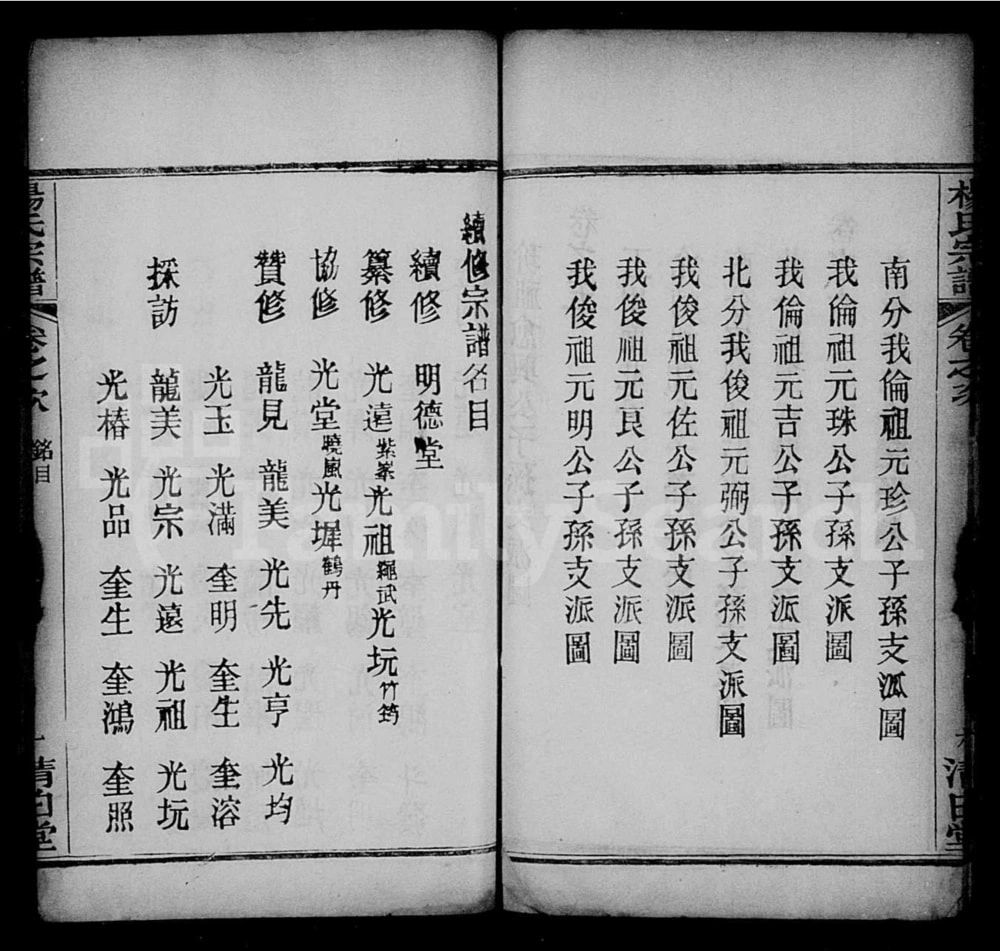 楊氏宗譜
卷之次
清白堂
南分我倫祖元珍公子孫支派圖
我倫祖元珠公子孫支派圖
我倫祖元吉公子孫支派圖
北分我俊祖元弼公子孫支派圖
我俊祖元佐公子孫支派圖
我俊祖元良公子孫支派圖
我俊祖元明公子孫支派圖
續修宗譜名目
續修 明德堂
纂修 光遠紫峯光祖繩武光玩竹筠
協修 光堂曉風光墀鶴丹
贊修 龍見 龍美 光先 光亨 光均
光玉 光滿 奎明 奎生 奎溶
採訪 龍美 光宗 光遠 光祖 光玩
光椿 光品 奎生 奎鴻 奎照
楊氏宗譜
卷之次
銘目
一
清白堂
FamilySearch